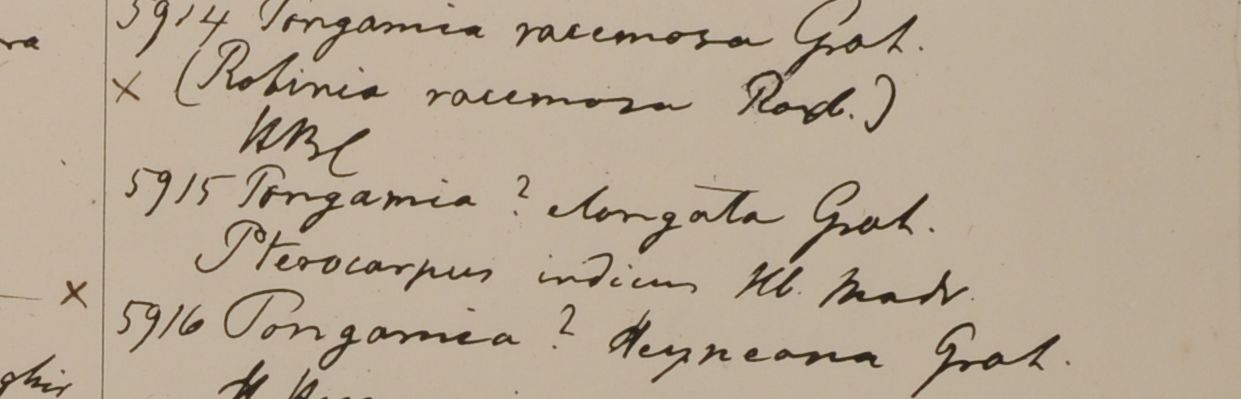 ra
5914 Pongamia racemosa Grah.
× (Robinia racemosa Roxb.)
HBC
5915 Pongamia ? elongata Grah.
Pterocarpus indicus Hb. Madr.
×
5916 Pongamia ? Heyneana Grah.
ghir